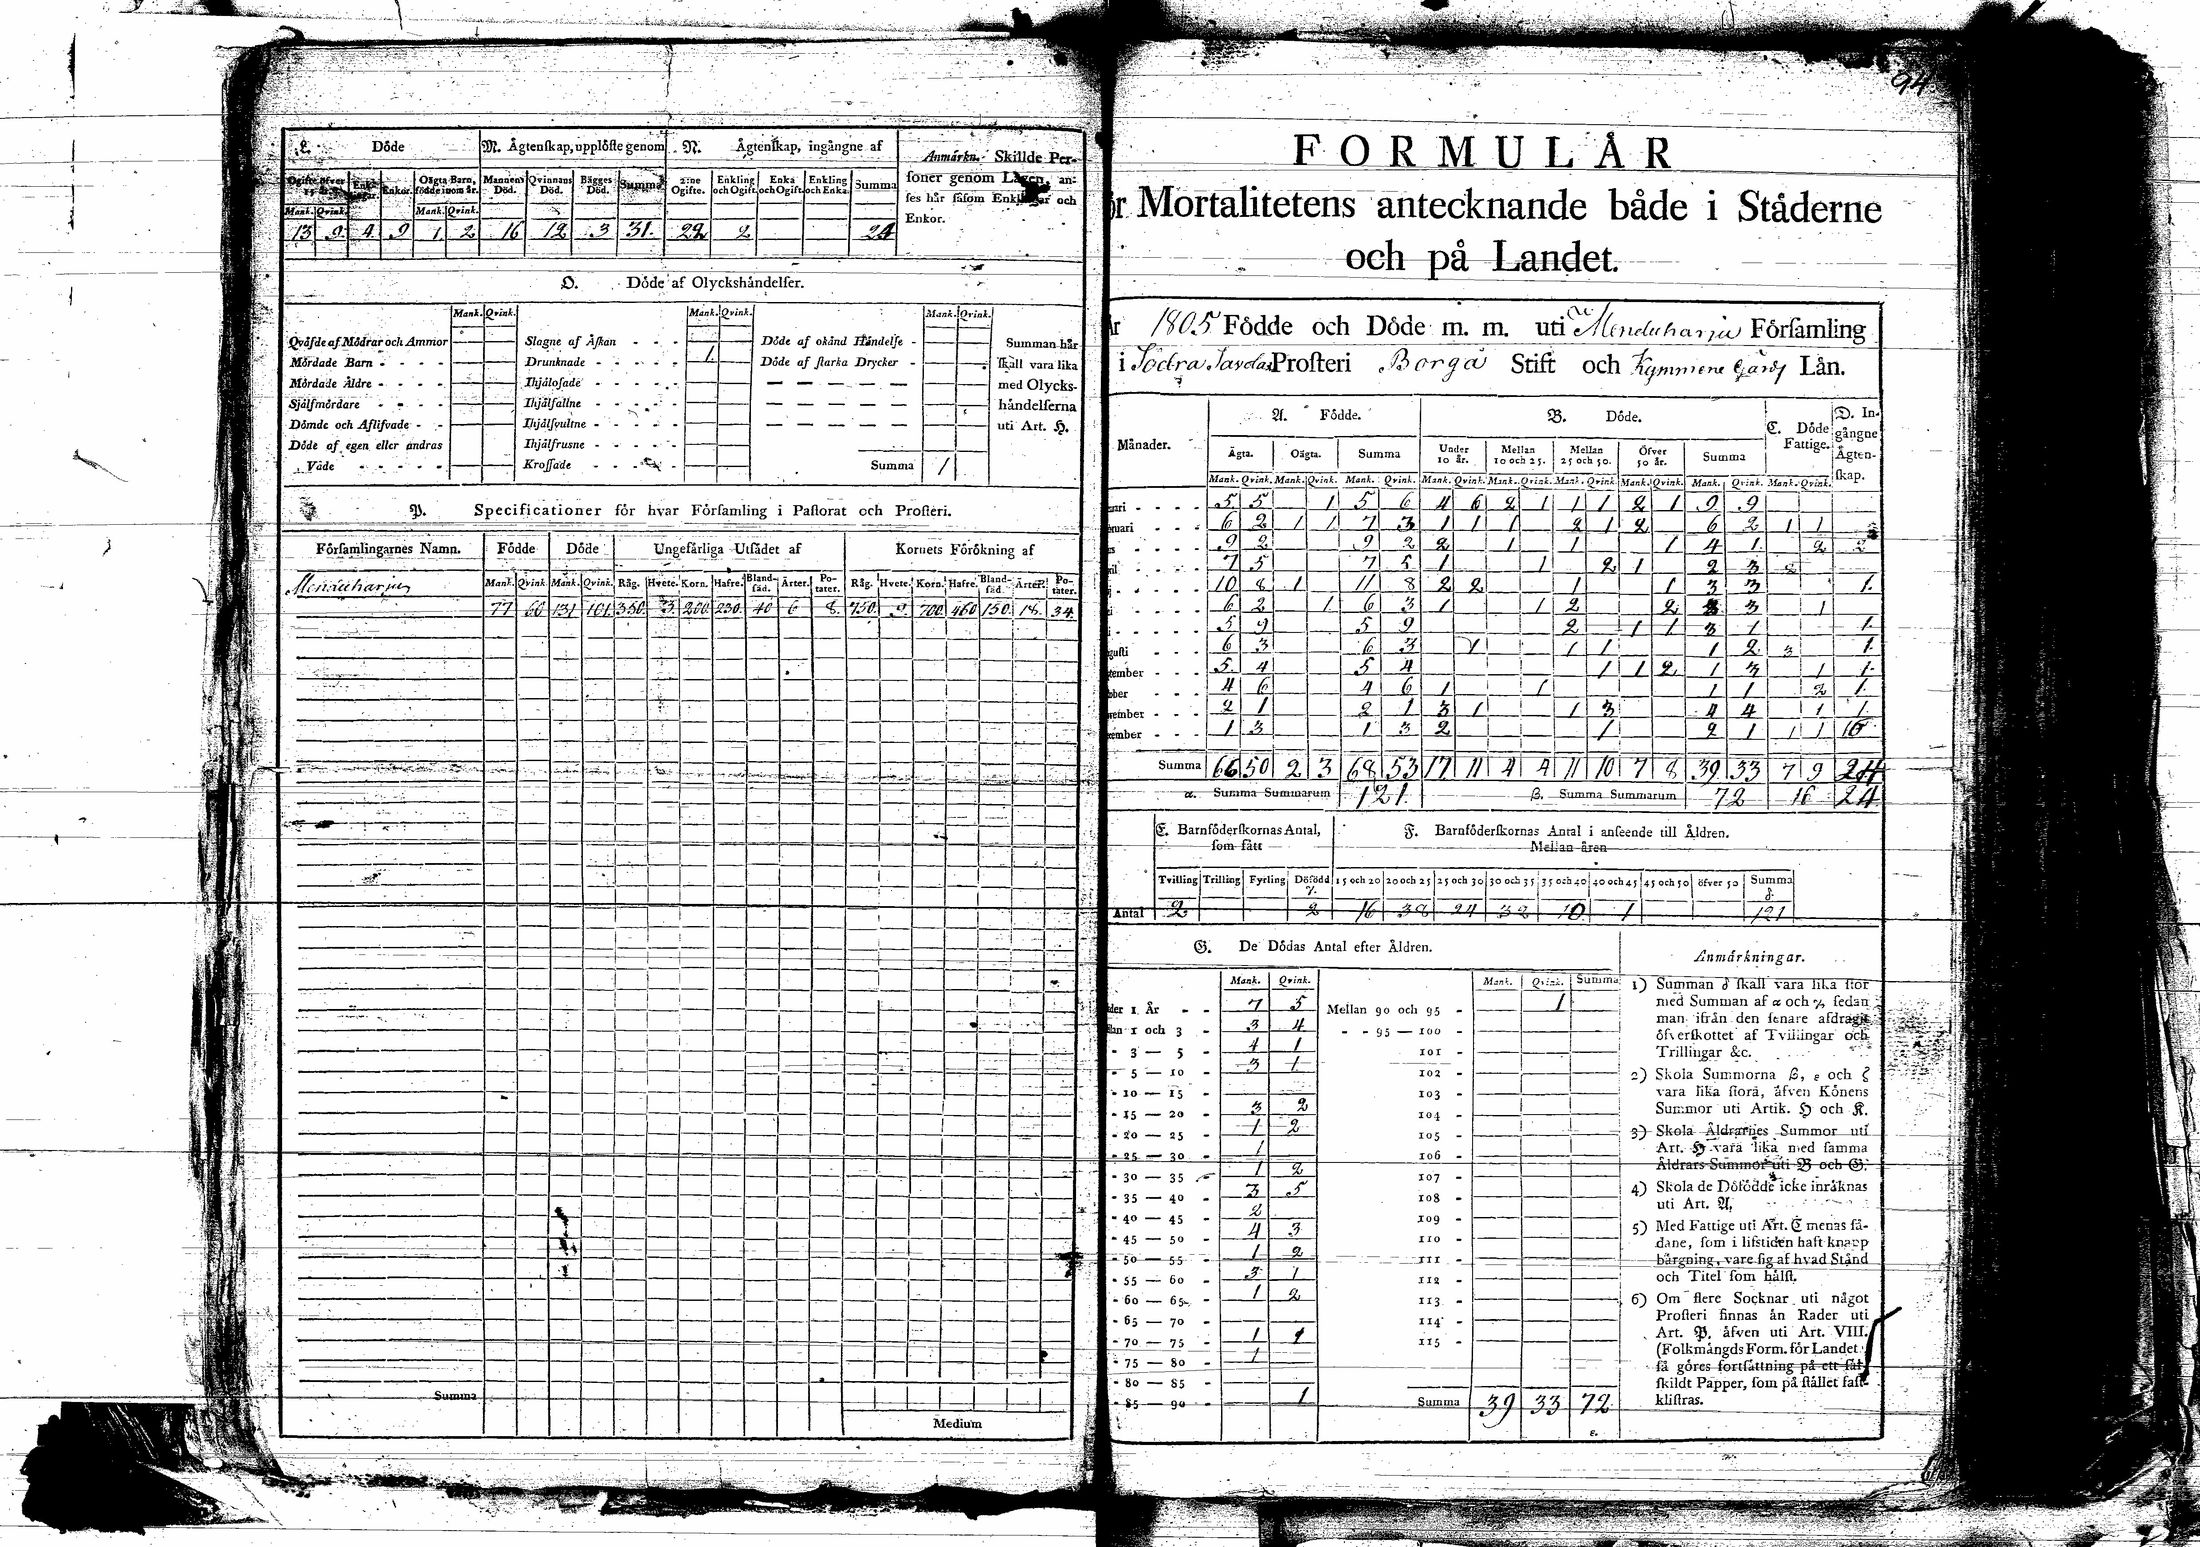 L. Döde
M. Ägtenskap, upplöste genom
N. Ägtenskap, ingångne af
Anmärkn. Skillde Per-
soner genom Lagen, an-
ses här såsom Enklingar och
Enkor.
Ogifte öfver 15 år. Enklingar. Enkor. Oägta Barn, födde inom år. Mannens Död. Qvinnans Död. Bägges Död. Summa 2:ne Ogifte. Enkling och Ogift. Enka och Ogift. Enkling och Enka. Summa
Mank. Qvink. Mank. Qvink.
13 9 4 9 1 2 16 12 3 31. 22 2 24
O. Döde af Olyckshändelser.
Mank. Qvink. Mank. Qvink. Mank. Qvink.
Qväfde af Mödrar och Ammor Slagne af Åskan - - - Döde af okänd Händelse - Summan här
Mördade Barn - - - - Drunknade - - - - - 1. Döde af starka Drycker - skall vara lika
Mördade Äldre - - - - Ihjälosade - - - - med Olycks-
Själfmördare - - - - Ihjälfallne - - - - händelserna
Dömde och Aflifvade - - Ihjälsvultne - - - - uti Art. H.
Döde af egen eller andras Ihjälfrusne - - - - -
Våde - - - - - Krossade - - - - Summa 1
P. Specificationer för hvar Församling i Pastorat och Prosteri.
Församlingarnes Namn. Födde Döde Ungefärliga Utsädet af Kornets Förökning af
Mank. Qvink. Mank. Qvink. Råg. Hvete. Korn. Hafre. Bland-säd. Ärter. Po-tater. Råg. Hvete. Korn. Hafre. Bland-säd. Ärter. Po-tater.
Menduharju
77 60 131 101 350 3 200 230 40 6 8. 750. 9. 700 460 150 18. 34.
Summa
Medium
94.
FORMULÄR
ör Mortalitetens antecknande både i Städerne
och på Landet.
År 1805 Födde och Döde m. m. uti Menduharju Församling
i Södra Savolax Prosteri Borgå Stift och Kymmene Gårds Län.
Månader. A. Födde. B. Döde. C. Döde Fattige. D. Ingångne Ägtenskap.
Ägta. Oägta. Summa Under 10 år. Mellan 10 och 25. Mellan 25 och 50. Öfver 50 år. Summa
Mank. Qvink. Mank. Qvink. Mank. Qvink. Mank. Qvink. Mank. Qvink. Mank. Qvink. Mank. Qvink. Mank. Qvink. Mank. Qvink.
uari - - - - 5 5 1 5 6 4 6 2 1 1 1 2 1 9 9
ruari - - - 6 2 1 1 7 3 1 1 1 2 1 2 6 2 1 1
s - - - - 9 2 9 2 2 1 1 1 4 1. 2 2
ril - - - 7 5 7 5 1 1 2 1 2 3 2
j - - - - 10 8 1 11 8 2 2 1 1 3 3 1.
i - - - - 6 2 1 6 3 1 1 2 2 3 3 1
i - - - - 5 9 5 9 2 1 1 3 1 1.
gusti - - - 6 3 6 3 1 1 1 1 2 3 1.
tember - - - 5 4 5 4 1 1 2 1 3 1 1.
ober - - - 4 6 4 6 1 1 1 1 2 1.
vember - - - 2 1 2 1 3 1 1 3 4 4 1 1
ember - - - 1 3 1 3 2 1 2 1 1 1 16
Summa 66 50 2 3 68 53 17 11 4 4 11 10 7 8 39 33 7 9 24
α. Summa Summarum 121. β. Summa Summarum 72 16 24
E. Barnföderskornas Antal, som fått
F. Barnföderskornas Antal i anseende till Åldren.
Mellan åren
Tvilling Trilling Fyrling Döfödd γ. 15 och 20 20 och 25 25 och 30 30 och 35 35 och 40 40 och 45 45 och 50 öfver 50 Summa δ
Antal 2 2 16 38 24 32 10 1 121
G. De Dödas Antal efter Åldren.
Mank. Qvink. Mank. Qvink. Summa
der 1 År - - 7 5 Mellan 90 och 95 - 1
lan 1 och 3 - 3 4 - - 95 — 100 -
- 3 — 5 - 4 1 101 -
- 5 — 10 - 3 1 102 -
- 10 — 15 - 103 -
- 15 — 20 - 3 2 104 -
- 20 — 25 - 1 2 105 -
- 25 — 30 - 1 106 -
- 30 — 35 - 1 2 107 -
- 35 — 40 - 3 5 108 -
- 40 — 45 - 2 109 -
- 45 — 50 - 4 3 110 -
- 50 — 55 - 1 2 111 -
- 55 — 60 - 3 1 112 -
- 60 — 65 - 1 2 113 -
- 65 — 70 - 114 -
- 70 — 75 - 1 1 115 -
- 75 — 80 - 1
- 80 — 85 -
- 85 — 90 - 1 Summa 39 33 72
ε.
Anmärkningar.
1) Summan δ skall vara lika stor
med Summan af α och γ, sedan
man ifrån den senare afdragit
öfverskottet af Tvillingar och
Trillingar &c.
2) Skola Summorna β, ε och ζ
vara lika stora, äfven Könens
Summor uti Artik. H och K.
3) Skola Åldrarnes Summor uti
Art. H vara lika med samma
Åldrars Summor uti B och G.
4) Skola de Döfödde icke inräknas
uti Art. A.
5) Med Fattige uti Art. C menas så-
dane, som i lifstiden haft knapp
bärgning, vare sig af hvad Stånd
och Titel som hälst.
6) Om flere Socknar uti något
Prosteri finnas än Rader uti
Art. P, äfven uti Art. VIII.
(Folkmängds Form. för Landet)
så göres fortsättning på ett sär-
skildt Papper, som på stället fast-
klistras.